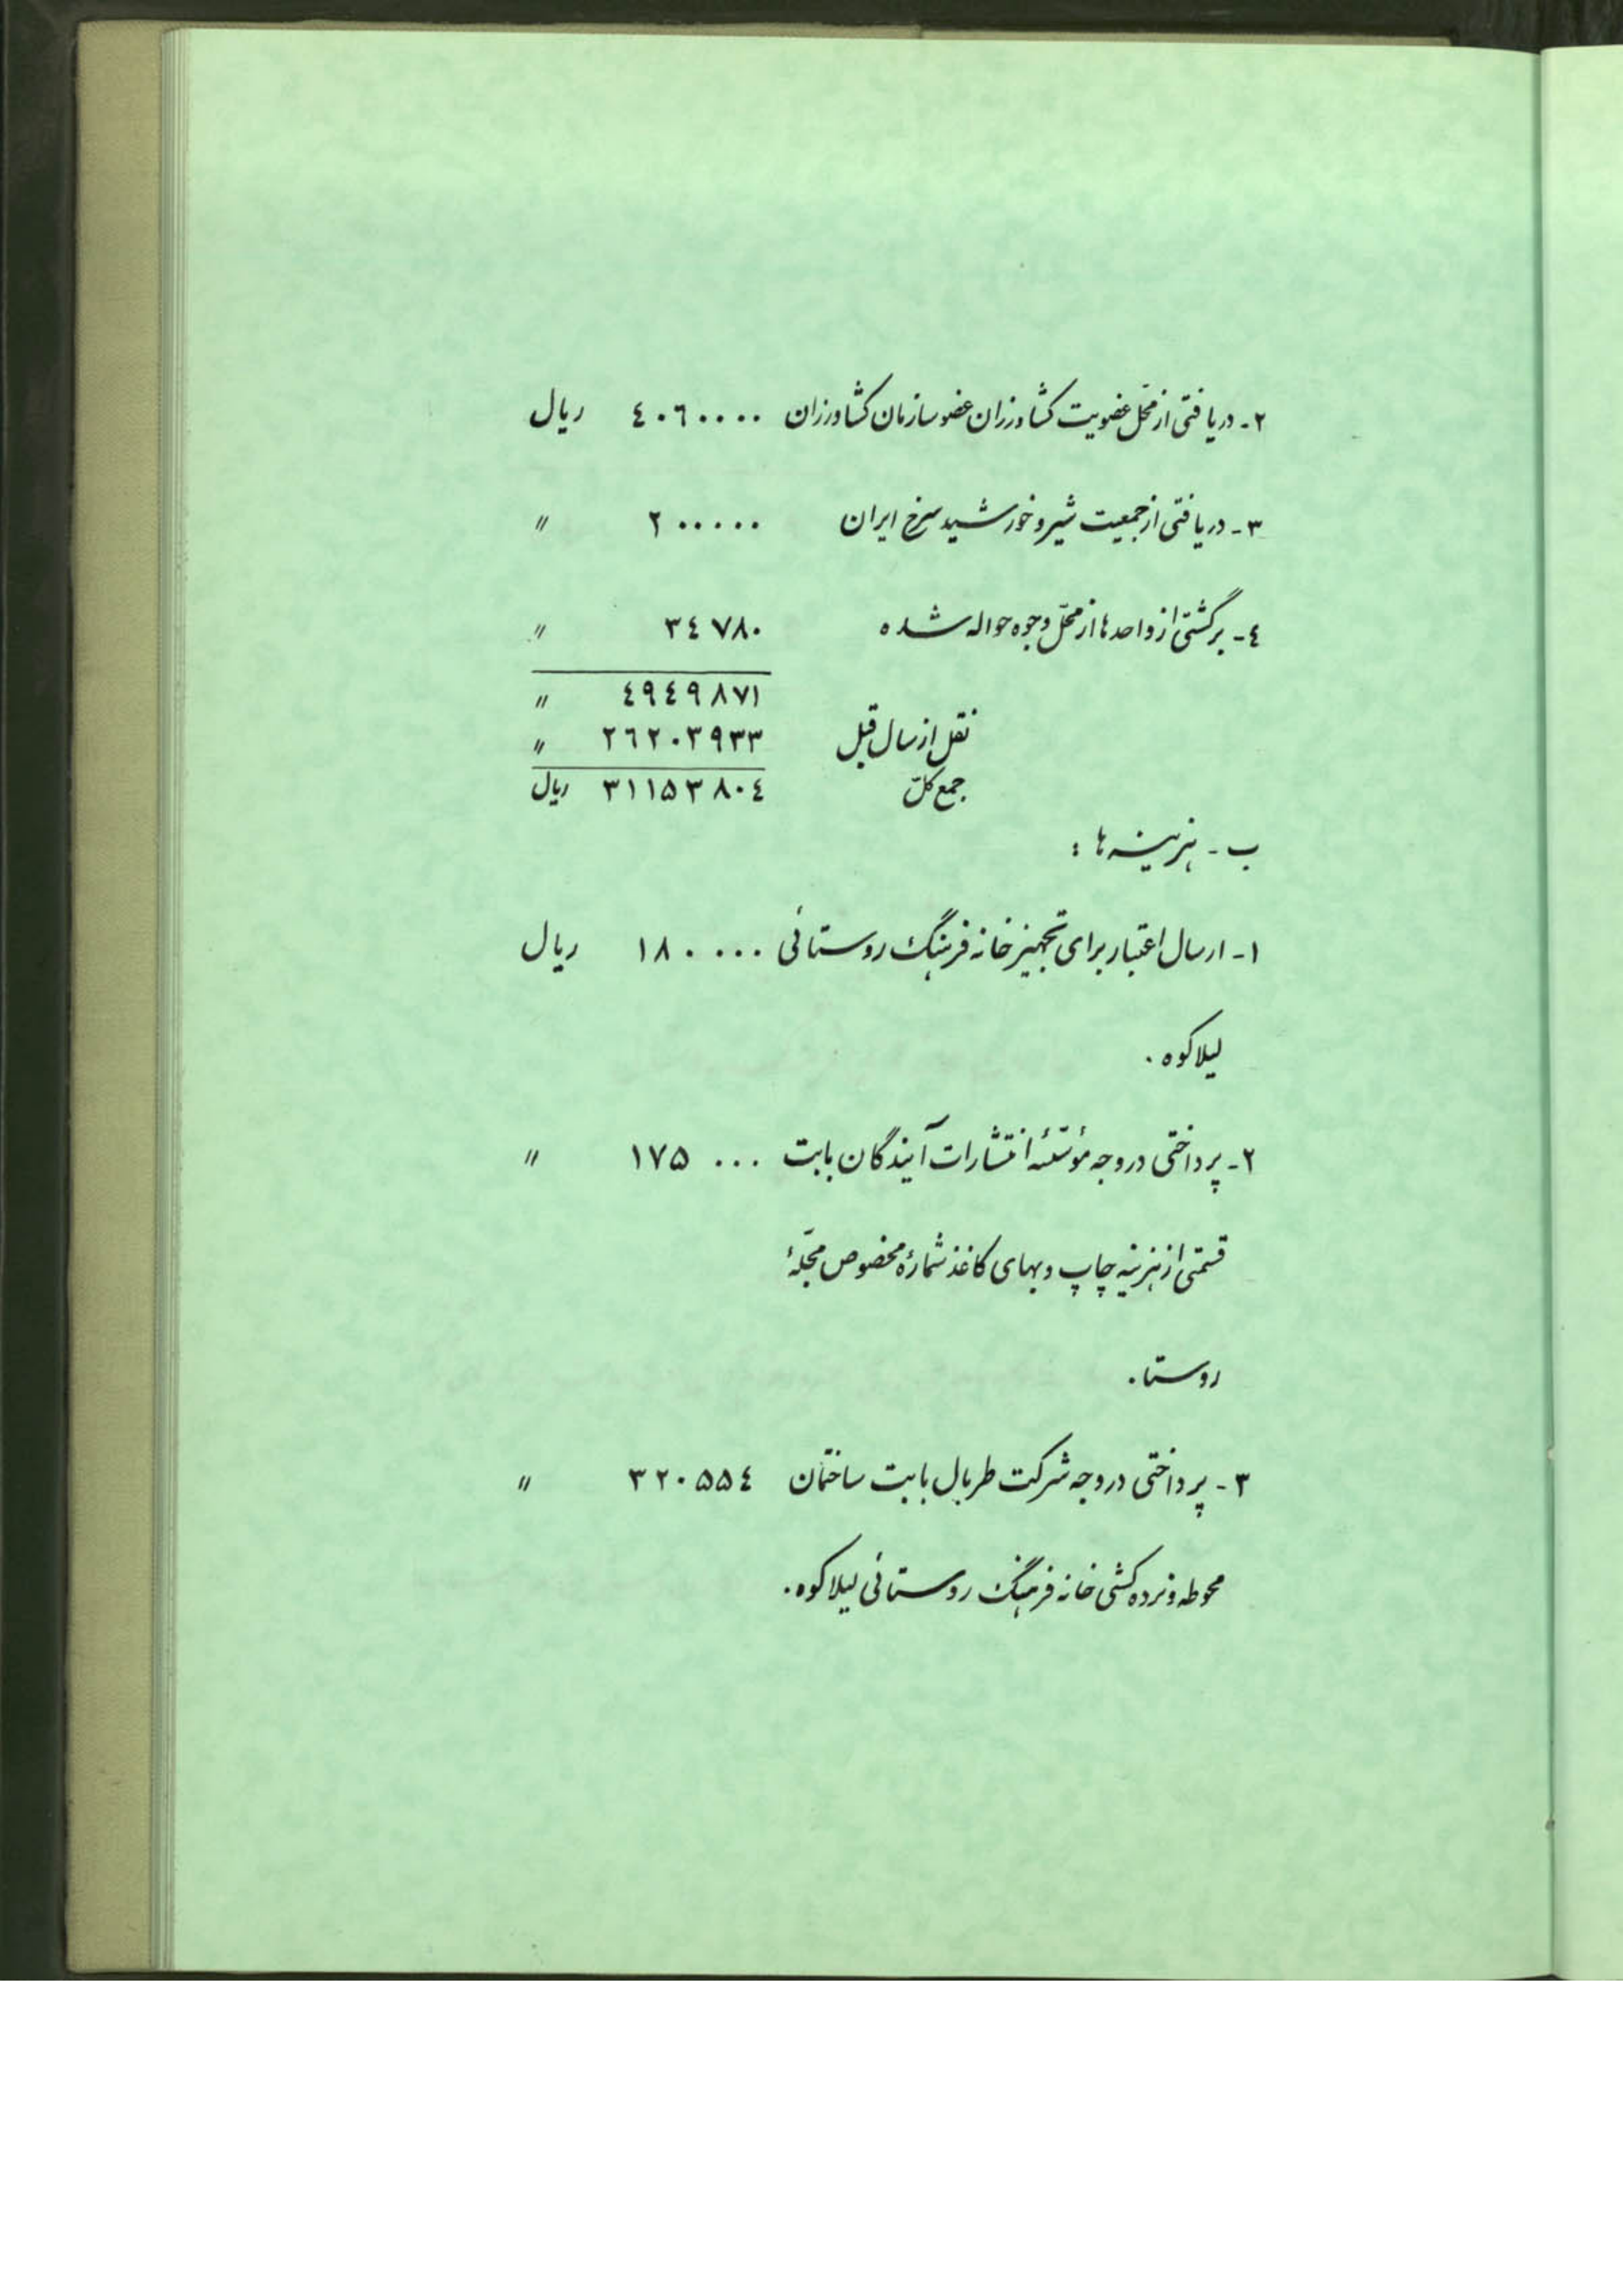 ۲- دریافتی از محل عضویت کشاورزان عضو سازمان کشاورزان ۴۰۶۰۰۰۰ ریال
۳- دریافتی از جمعیت شیر و خورشید سرخ ایران ۲۰۰۰۰۰ "
۴- برگشتی از واحدها از محلّ وجوه حواله شده ۳۴۷۸۰ "
۴۹۴۹۸۷۱ "
نقل از سال قبل ۲۶۲۰۳۹۳۳ "
جمع کلّ ۳۱۱۵۳۸۰۴ ریال
ب - هزینه ها :
۱- ارسال اعتبار برای تجهیز خانه فرهنگ روستائی ۱۸۰۰۰۰ ریال
لیلاکوه .
۲- پرداختی در وجه مؤسّسهٔ انتشارات آیندگان بابت ۱۷۵۰۰۰ "
قسمتی از هزینه چاپ و بهای کاغذ شمارهٔ مخصوص مجلّهٔ
روستا .
۳- پرداختی در وجه شرکت طربال بابت ساختمان ۳۲۰۵۵۴ "
محوطه و نرده کشی خانه فرهنگ روستائی لیلاکوه .